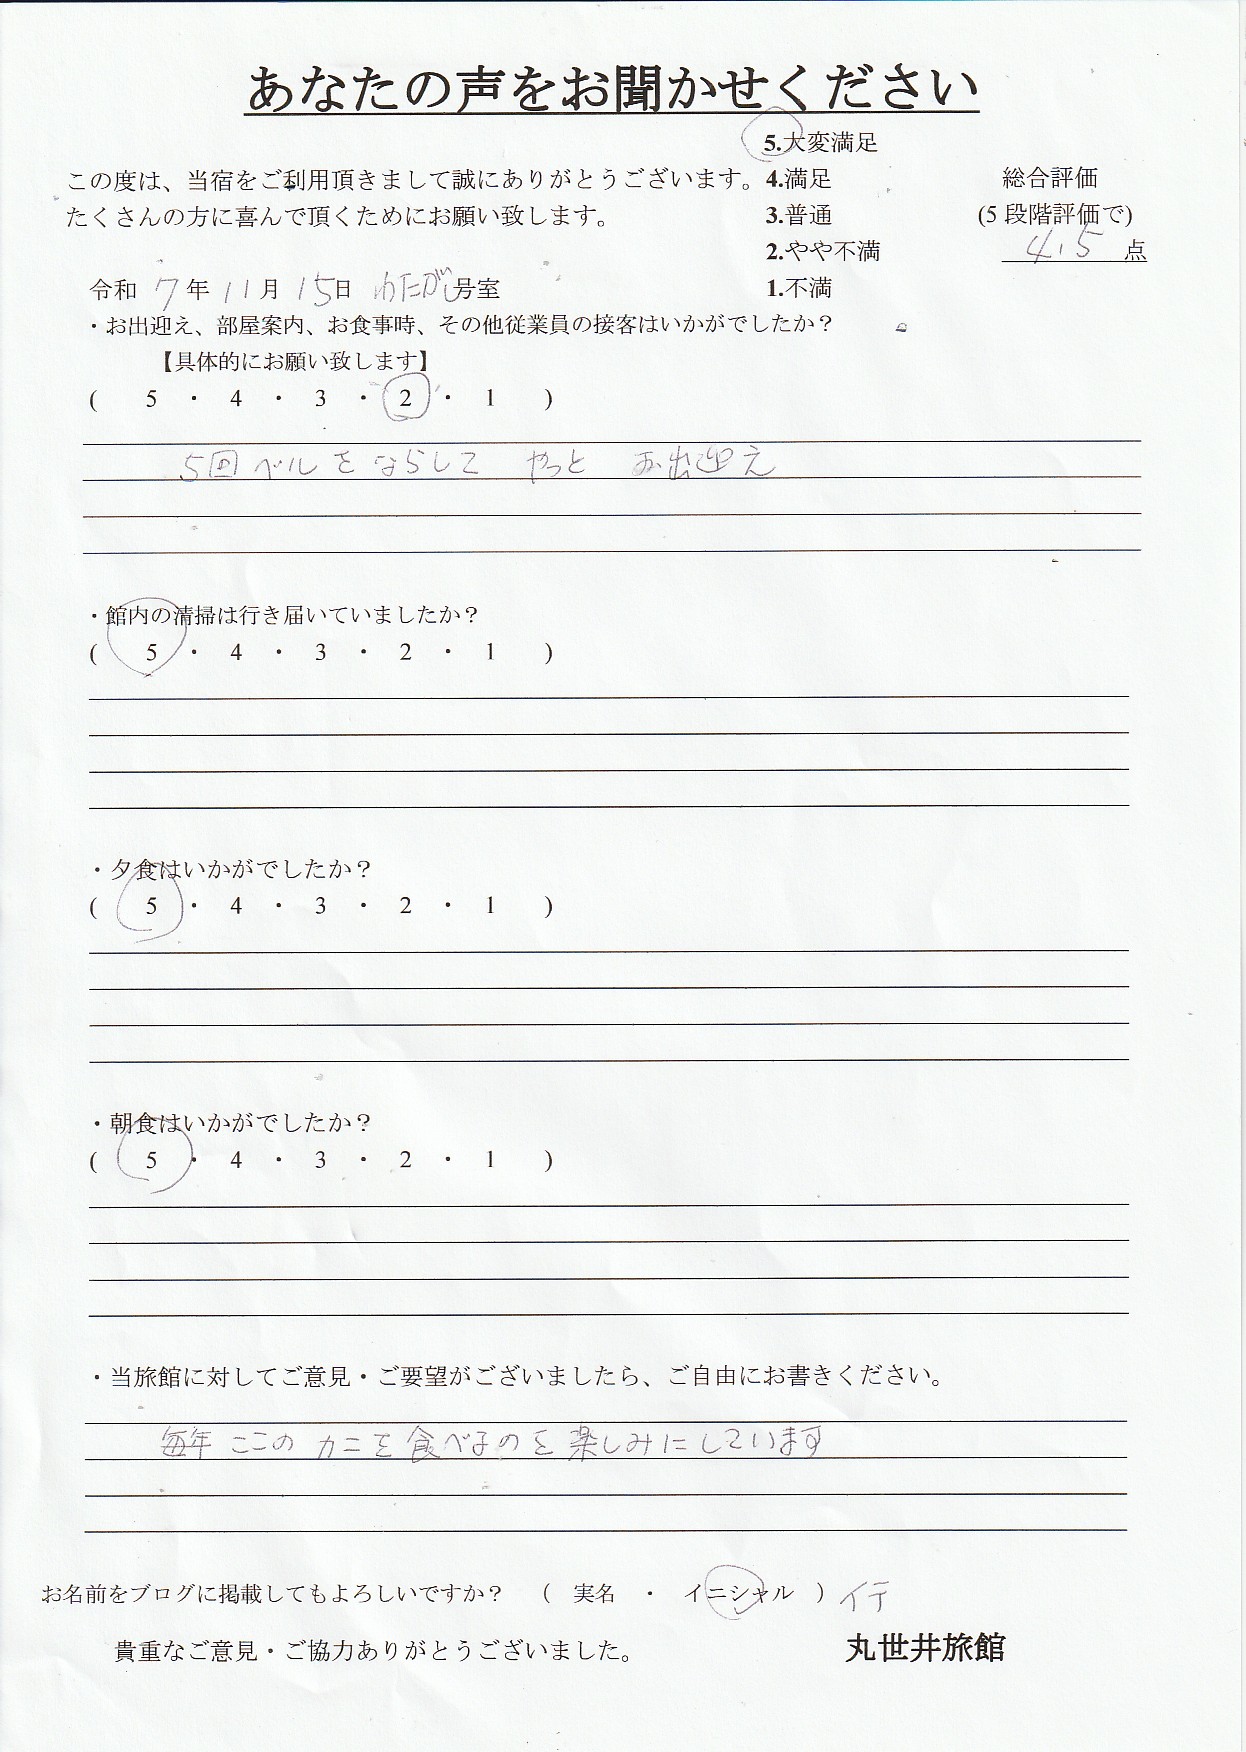 あなたの声をお聞かせください
5.大変満足
この度は、当宿をご利用頂きまして誠にありがとうございます。 4.満足 総合評価
たくさんの方に喜んで頂くためにお願い致します。 3.普通 (5 段階評価で)
2.やや不満 4.5 点
令和 7 年 11 月 15 日 わたがし号室 1.不満
・お出迎え、部屋案内、お食事時、その他従業員の接客はいかがでしたか？
【具体的にお願い致します】
( 5 ・ 4 ・ 3 ・ 2 ・ 1 )
5回ベルをならして やっと お出迎え
・館内の清掃は行き届いていましたか？
( 5 ・ 4 ・ 3 ・ 2 ・ 1 )
・夕食はいかがでしたか？
( 5 ・ 4 ・ 3 ・ 2 ・ 1 )
・朝食はいかがでしたか？
( 5 ・ 4 ・ 3 ・ 2 ・ 1 )
・当旅館に対してご意見・ご要望がございましたら、ご自由にお書きください。
毎年 ここの カニを食べるのを楽しみにしています
お名前をブログに掲載してもよろしいですか？ ( 実名 ・ イニシャル ) イテ
貴重なご意見・ご協力ありがとうございました。 丸世井旅館